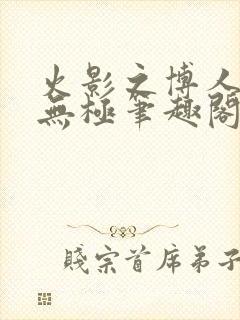 火影之博人
無極筆趣閣
賤宗首席弟子